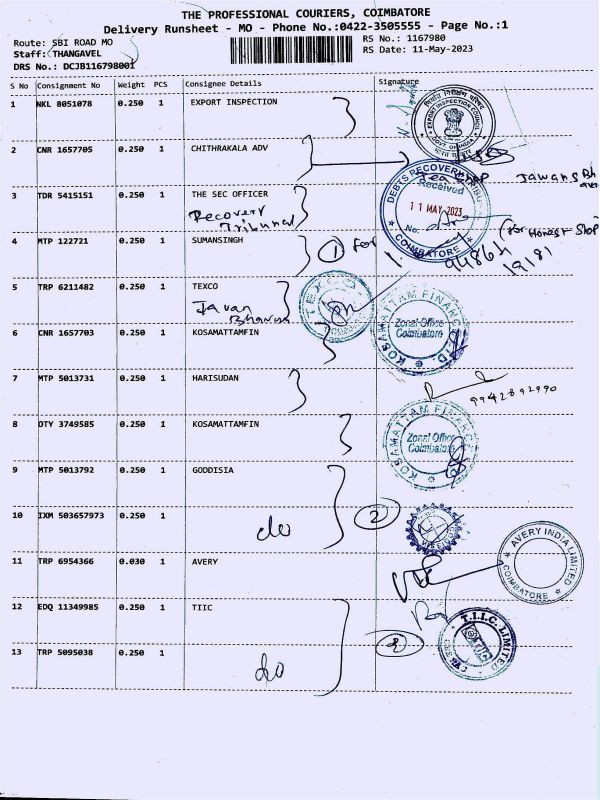 THE PROFESSIONAL COURIERS, COIMBATORE
Delivery Runsheet - MO - Phone No.:0422-3505555 - Page No.:1
Route: SBI ROAD MO
RS No.: 1167980
Staff: THANGAVEL
RS Date: 11-May-2023
DRS No.: DCJB116798001
S No Consignment No Weight PCS Consignee Details Signature
1 NKL 8051078 0.250 1 EXPORT INSPECTION
EXPORT INSPECTION COUNCIL
GOVT. OF INDIA
2 CNR 1657705 0.250 1 CHITHRAKALA ADV
Tea Shop Jawans Bh
3 TDR 5415151 0.250 1 THE SEC OFFICER
Recovery
Tribunal
DEBTS RECOVERY TRIBUNAL
Received
11 MAY 2023
No.
COIMBATORE
4 MTP 122721 0.250 1 SUMANSINGH
1 for
Honest Shop
94864
19181
5 TRP 6211482 0.250 1 TEXCO
Javan
Bhavan
TEXCO
6 CNR 1657703 0.250 1 KOSAMATTAMFIN
KOSAMATTAM FINANCE LTD.
Zonal Office
Coimbatore
7 MTP 5013731 0.250 1 HARISUDAN
9942892990
8 DTY 3749585 0.250 1 KOSAMATTAMFIN
KOSAMATTAM FINANCE
Zonal Office
Coimbatore
9 MTP 5013792 0.250 1 GODDISIA
10 IXM 503657973 0.250 1
do
2
11 TRP 6954366 0.030 1 AVERY
AVERY INDIA LIMITED
COIMBATORE
12 EDQ 11349985 0.250 1 TIIC
T.I.I.C. LIMITED
13 TRP 5095038 0.250 1
do